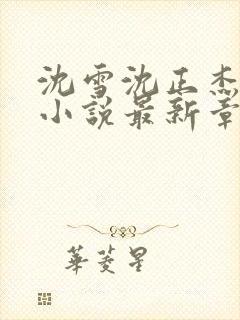 沈雪沈正杰
小説最新章
華菱星